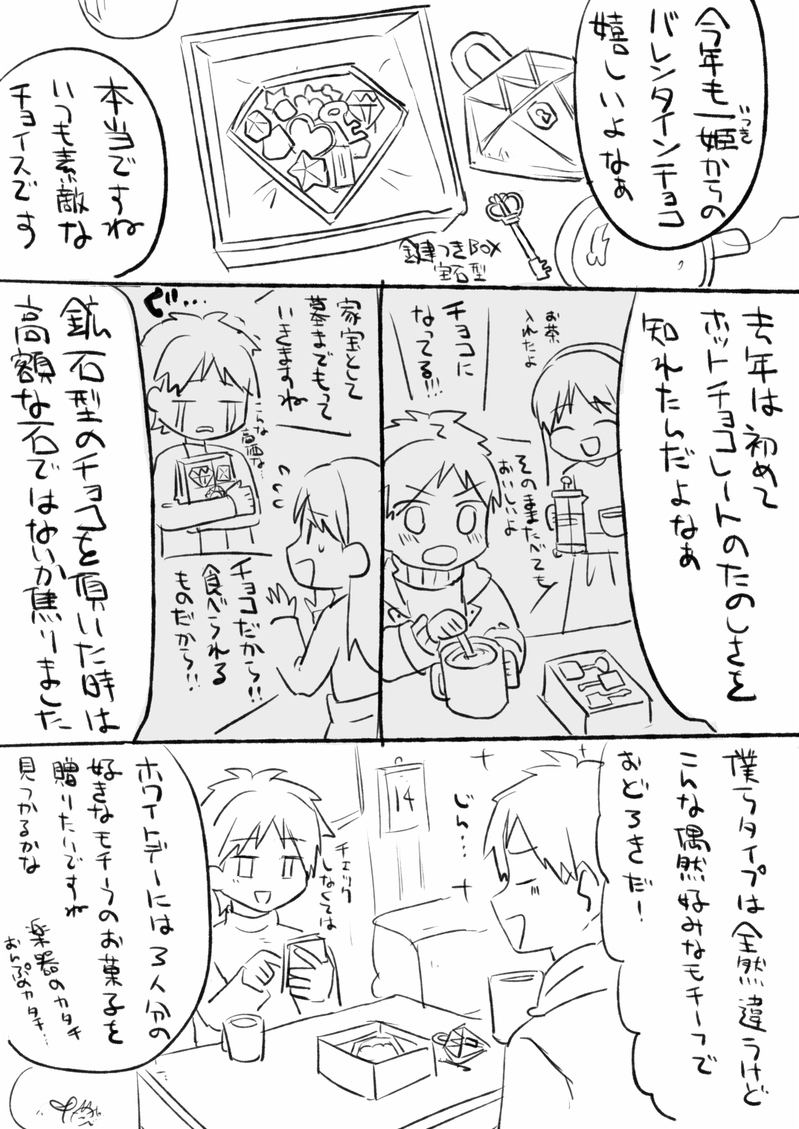 今年も一姫からの
いつき
バレンタインチョコ
嬉しいよなぁ
本当ですね
いつも素敵な
チョイスです
鍵つきBOX
宝石型
去年は初めて
ホットチョコレートのたのしさを
知れたんだよなぁ
お茶
入れたよ
チョコに
なってる!!!
そのままたべても
おいしいよ
家宝として
墓までもって
いきますね
ぐ…
こんな
高価な…
チョコだから!!
食べられる
ものだから!!
鉱石型のチョコを頂いた時は
高額な石ではないか焦りました
僕らタイプは全然違うけど
こんな偶然好みなモチーフで
おどろきだ!
じん…
14
チェック
しなくては
ホワイトデーには3人分の
好きなモチーフのお菓子を
贈りたいですね
見つかるかな
楽器のカタチ
おんぷのカタチ…